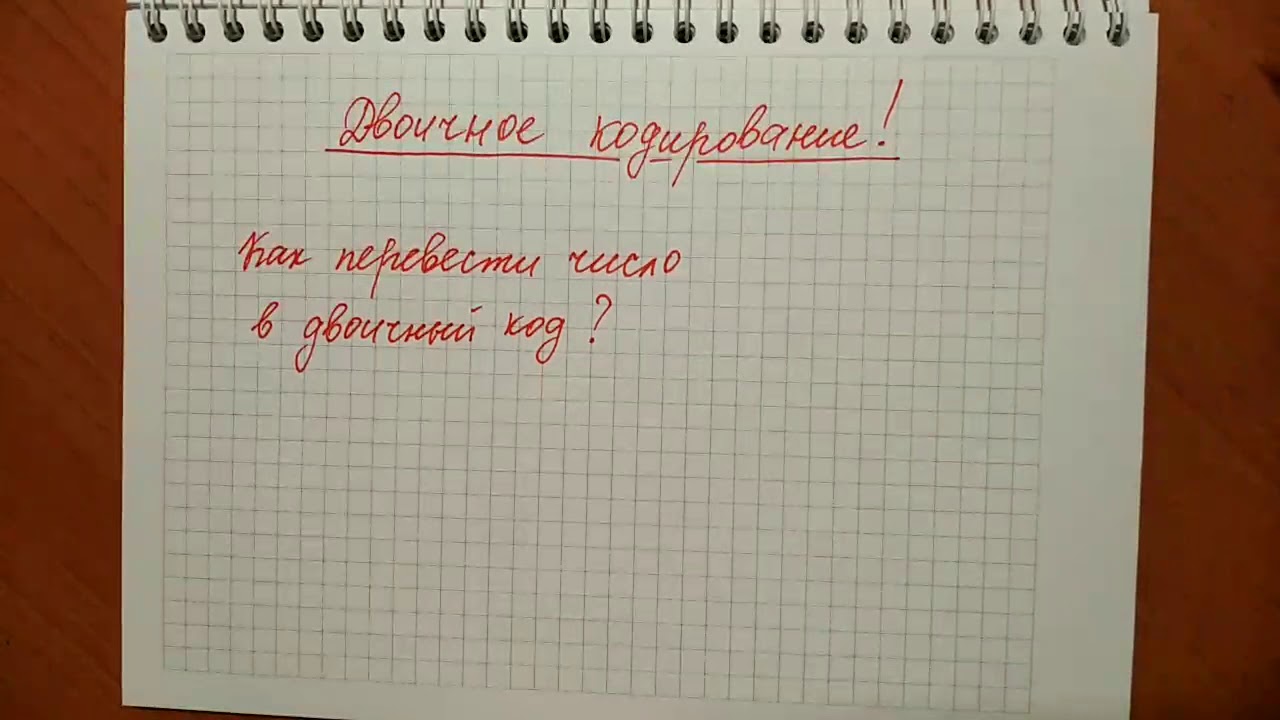 Двоичное кодирование!
Как перевести число
в двоичный код?